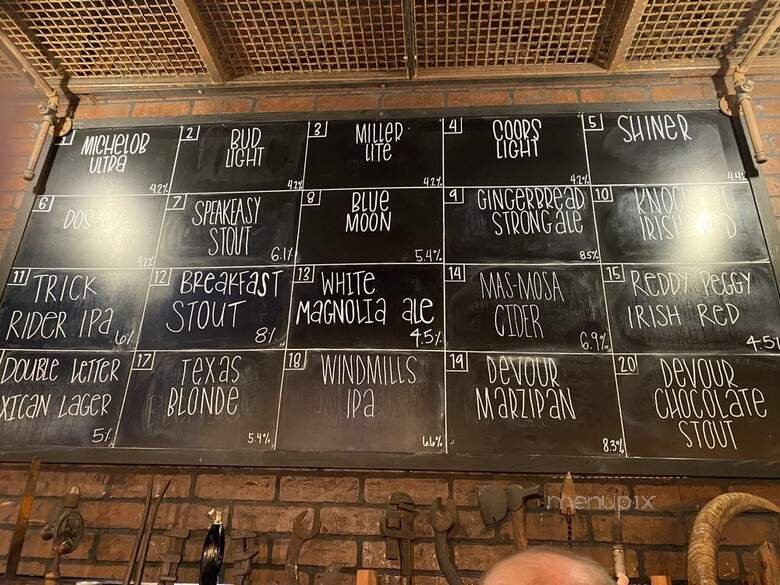 1 MICHELOB
ULTRA
4.2%
2 BUD
LIGHT
4.2%
3 MILLER
LITE
4.2%
4 COORS
LIGHT
4.2%
5 SHINER
4.4%
6
4.2%
7 SPEAKEASY
STOUT
6.1%
8 BLUE
MOON
5.4%
9 GINGERBREAD
STRONG ALE
8.5%
10
IRISH
11 TRICK
RIDER IPA
6%
12 BREAKFAST
STOUT
8%
13 WHITE
MAGNOLIA ALE
4.5%
14 MAS-MOSA
CIDER
6.9%
15 REDDY PEGGY
IRISH RED
4.5%
DOUBLE LETTER
XICAN LAGER
5%
17 TEXAS
BLONDE
5.4%
18 WINDMILLS
IPA
6.6%
19 DEVOUR
MARZIPAN
8.3%
20 DEVOUR
CHOCOLATE
STOUT
menupix